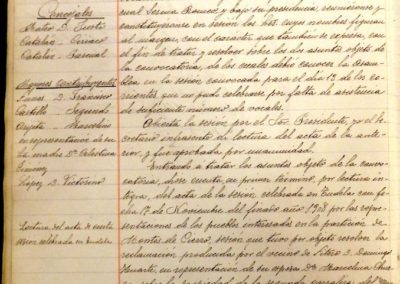 Concejales
Mateo D. Justo
Catalán - Ciriaco
Catalán - Pascual
Mayores contribuyentes
Llanos - D. Francisco
Castillo - Segundo
Azpeita - Marcelino
en representación de su
Sra madre Dª Celestina
López D. Victorino
Lectura del acta de cuarta
sesión celebrada en Tudela
y bajo su presidencia, reuniéronse y
constituyéronse en sesión los Sres cuyos nombres figuran
al margen, con el carácter que también se expresa, con
el fin de tratar y resolver sobre los dos asuntos objeto de
la convocatoria, de los cuales debió conocer la Asam-
blea en la sesión convocada para el día 12 de los co-
rrientes que no pudo celebrarse por falta de asistencia
de suficiente número de vocales.
Abierta la sesión por el Sor Presidente, yo el Se-
cretario infrascrito dí lectura del acta de la ante-
rior, y fue aprobada por unanimidad.
Entrando a tratar los asuntos objeto de la convo-
catoria, dióse cuenta en primer término, por lectura ín-
tegra, del acta de la sesión celebrada en Tudela con fe-
cha 17 de Noviembre del finado año 1908 por las repre-
sentaciones de los pueblos interesados en la partición de
Montes de Cierzo, sesión que tuvo por objeto resolver la
reclamación producida por el vecino de Fitero D. Domingo
Huarte, en representación de su esposa Dª Marcelina